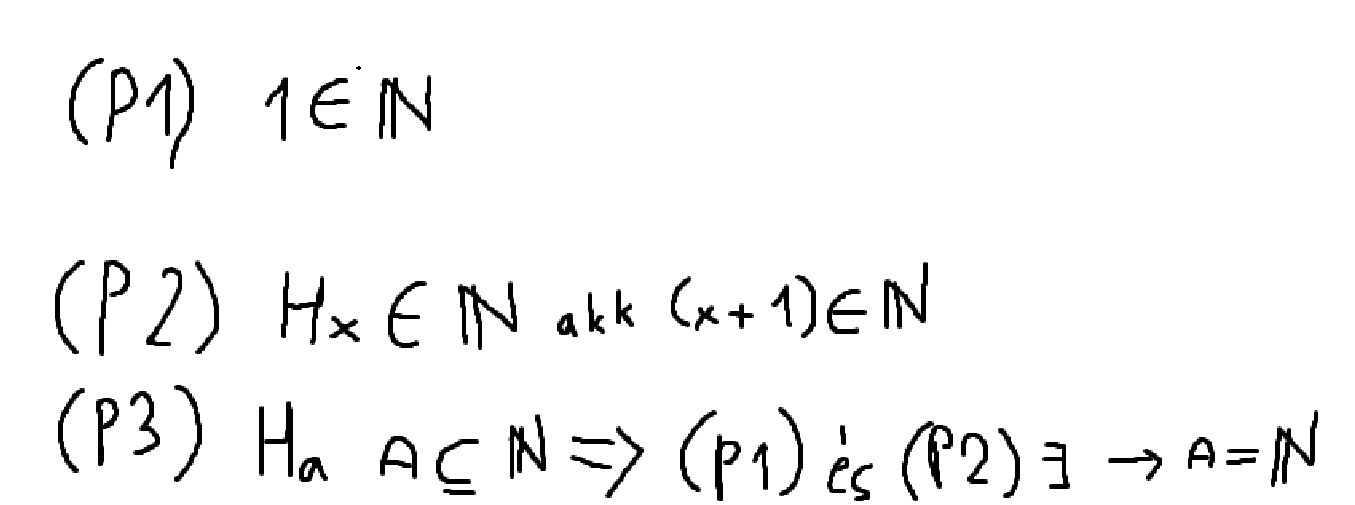 (P1) 1 ∈ ℕ
(P2) Hx ∈ ℕ akk (x+1) ∈ ℕ
(P3) Ha A ⊆ ℕ => (P1) és (P2) ∃ → A = ℕ